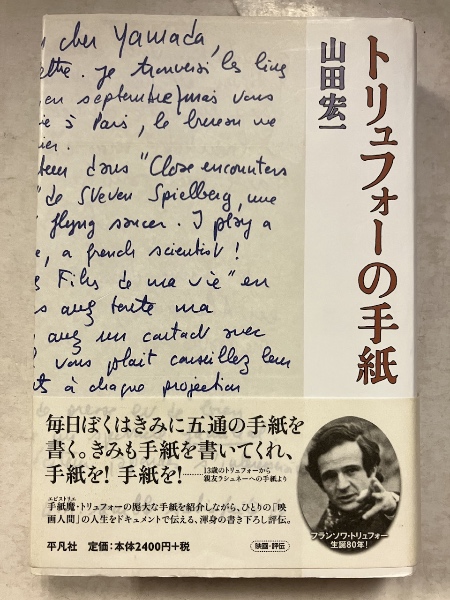 トリュフォーの手紙
山田宏一
cher Yamada,
lettre. Je trouverai les livres
en septembre) mais vous
à Paris, le bureau ne
dans "Close encounters
de Steven Spielberg, une
flying saucer. I play a
a french scientist!
Films de ma vie" en
ma
un contact avec
vous plait conseillez leur
à chaque projection
毎日ぼくはきみに五通の手紙を
書く。きみも手紙を書いてくれ、
手紙を! 手紙を!………13歳のトリュフォーから
親友ラシュネーへの手紙より
エピストリエ
手紙魔・トリュフォーの厖大な手紙を紹介しながら、ひとりの「映
画人間」の人生をドキュメントで伝える、渾身の書き下ろし評伝。
平凡社 定価:本体2400円+税
映画・評伝
フランソワ・トリュフォー
生誕80年!